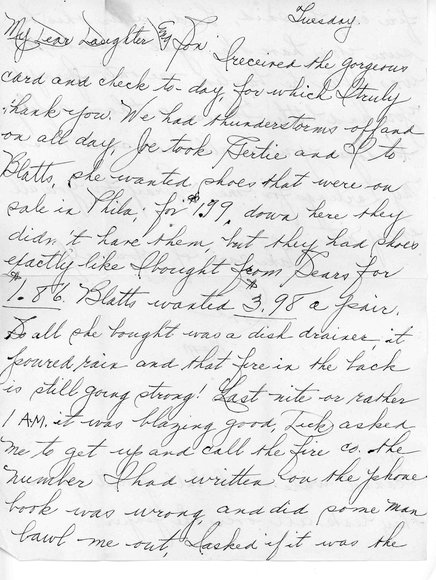 Tuesday.
My Dear Daughter and Son
I received the gorgeous
card and check to-day, for which I truly
thank you. We had thunderstorms off and
on all day. Joe took Gertie and I to
Blatts, she wanted shoes that were on
sale in Phila; for $1.99, down here they
didn't have them, but they had shoes
exactly like I bought from Sears for
$1.86. Blatts wanted $3.98 a pair.
So all she bought was a dish drainer, it
poured rain and that fire in the back
is still going strong! Last nite or rather
1 A.M. it was blazing good, Dick asked
me to get up and call the fire co. the
number I had written on the phone
book was wrong, and did some man
bawl me out, I asked if it was the